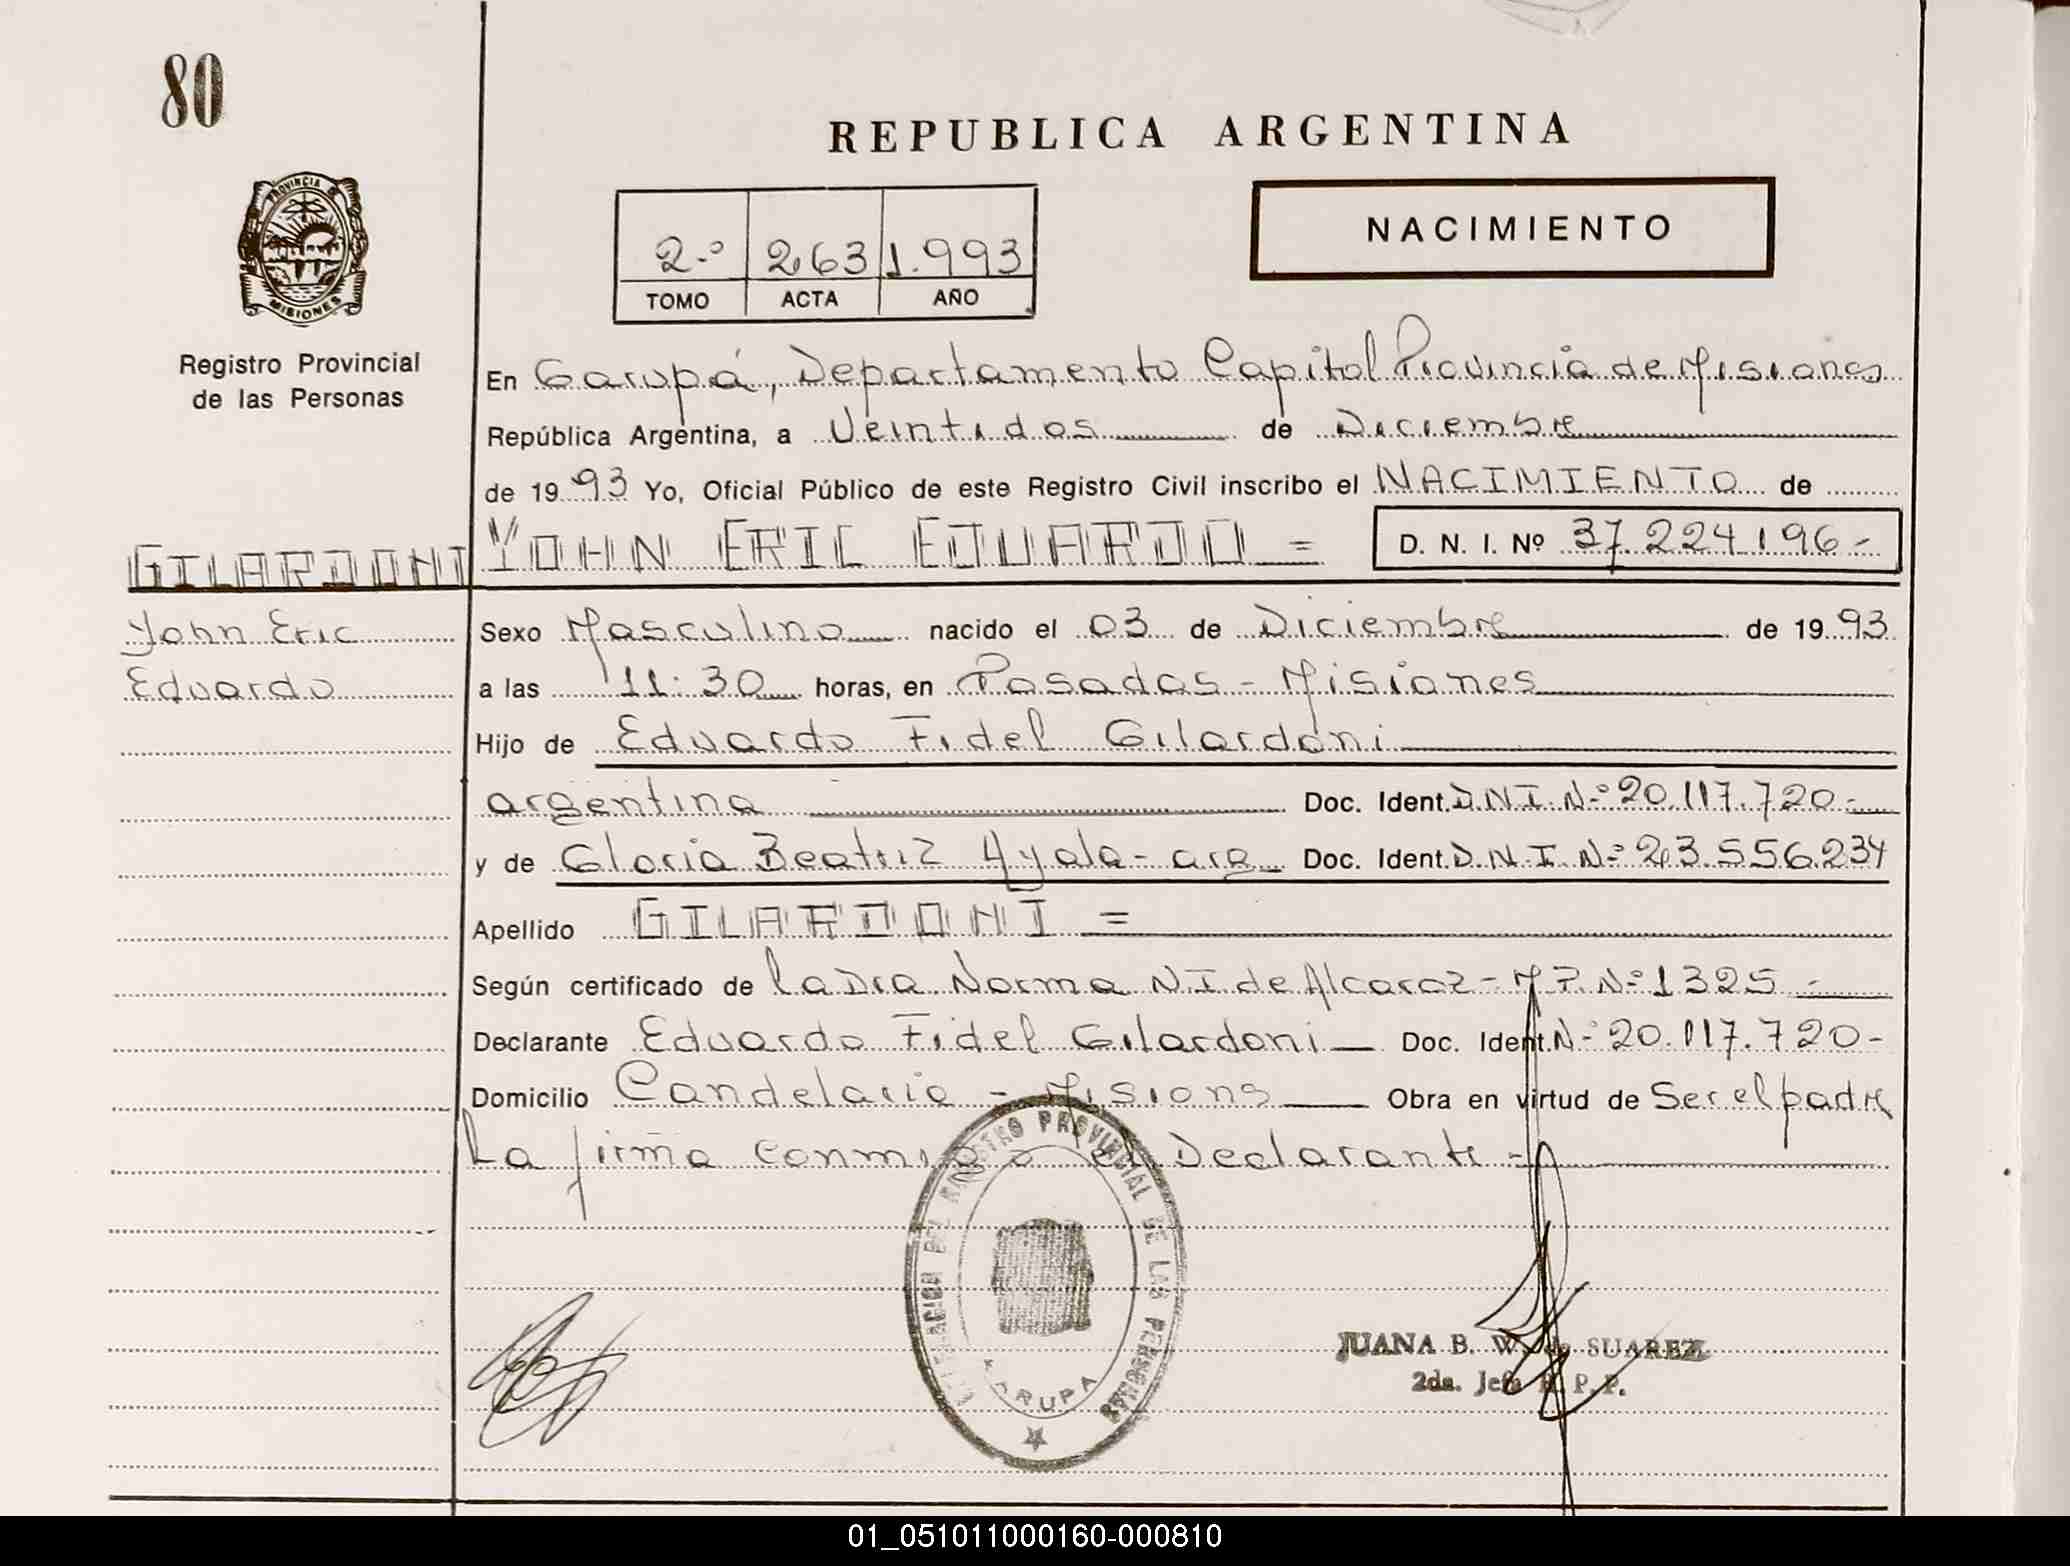 80
REPUBLICA ARGENTINA
PROVINCIA DE
MISIONES
NACIMIENTO
2.º 263 1.993
TOMO ACTA AÑO
Registro Provincial
de las Personas
En Garupá, Departamento Capital Provincia de Misiones
República Argentina, a Veintidos de Diciembre
de 19 93 Yo, Oficial Público de este Registro Civil inscribo el NACIMIENTO de
GILARDONI YOHN ERIC EDUARDO = D. N. I. Nº 37.224.196-
Yohn Eric
Eduardo
Sexo Masculino nacido el 03 de Diciembre de 19 93
a las 11:30 horas, en Posadas - Misiones
Hijo de Eduardo Fidel Gilardoni
argentina Doc. Ident. D.N.I. N.º 20.117.720-
y de Gloria Beatriz Ayala - arg Doc. Ident. D.N.I. N.º 23.556.234
Apellido GILARDONI =
Según certificado de la Dra Norma N I de Alcaraz - M P. N.º 1325 -
Declarante Eduardo Fidel Gilardoni Doc. Ident. N.º 20.117.720-
Domicilio Candelaria - Misions Obra en virtud de Ser el padre
La firma conmigo el Declarante -
DELEGACION DEL REGISTRO PROVINCIAL DE LAS PERSONAS
GARUPA
JUANA B. W. de SUAREZ
2da. Jefa R. P. P.
01_051011000160-000810